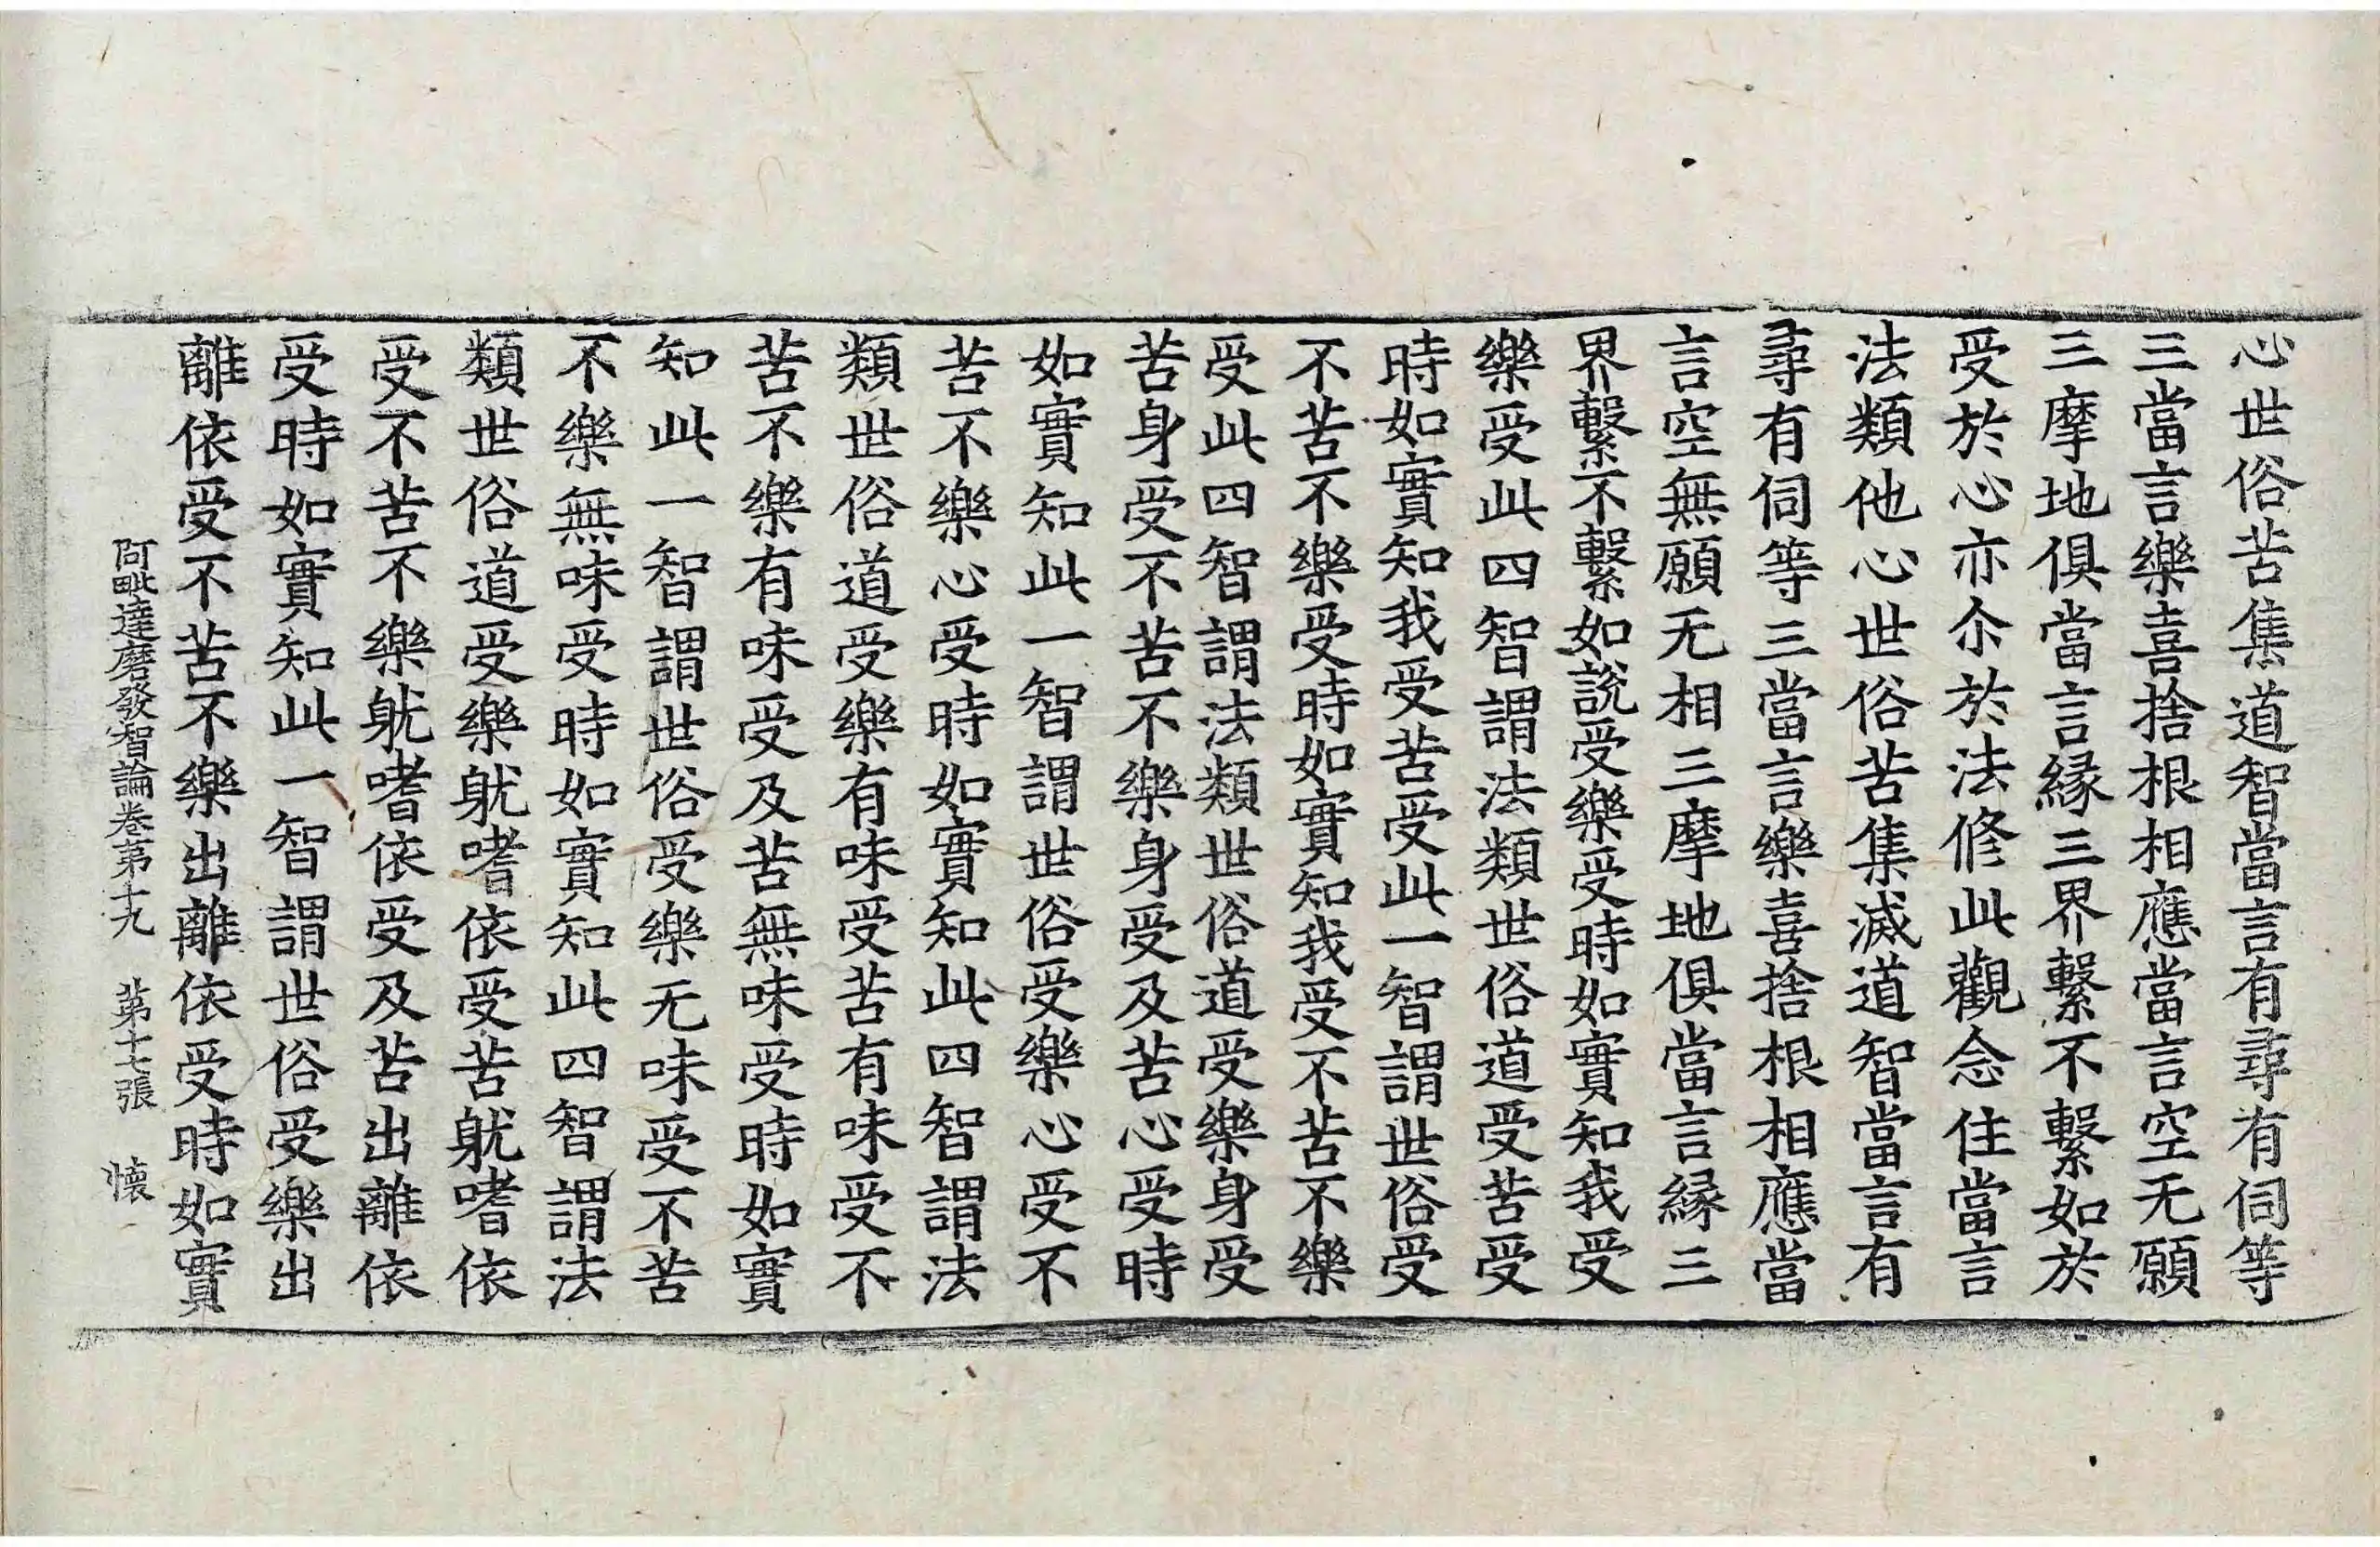 心世俗苦集道智當言有尋有伺等
三當言樂喜捨根相應當言空无願
三摩地俱當言緣三界繫不繫如於
受於心亦尒於法修此觀念住當言
法類他心世俗苦集滅道智當言有
尋有伺等三當言樂喜捨根相應當
言空無願无相三摩地俱當言緣三
界繫不繫如說受樂受時如實知我受
樂受此四智謂法類世俗道受苦受
時如實知我受苦受此一智謂世俗受
不苦不樂受時如實知我受不苦不樂
受此四智謂法類世俗道受樂身受
苦身受不苦不樂身受及苦心受時
如實知此一智謂世俗受樂心受不
苦不樂心受時如實知此四智謂法
類世俗道受樂有味受苦有味受不
苦不樂有味受及苦無味受時如實
知此一智謂世俗受樂无味受不苦
不樂無味受時如實知此四智謂法
類世俗道受樂躭嗜依受苦躭嗜依
受不苦不樂躭嗜依受及苦出離依
受時如實知此一智謂世俗受樂出
離依受不苦不樂出離依受時如實
阿毗達磨發智論卷第十九 第十七張 懷